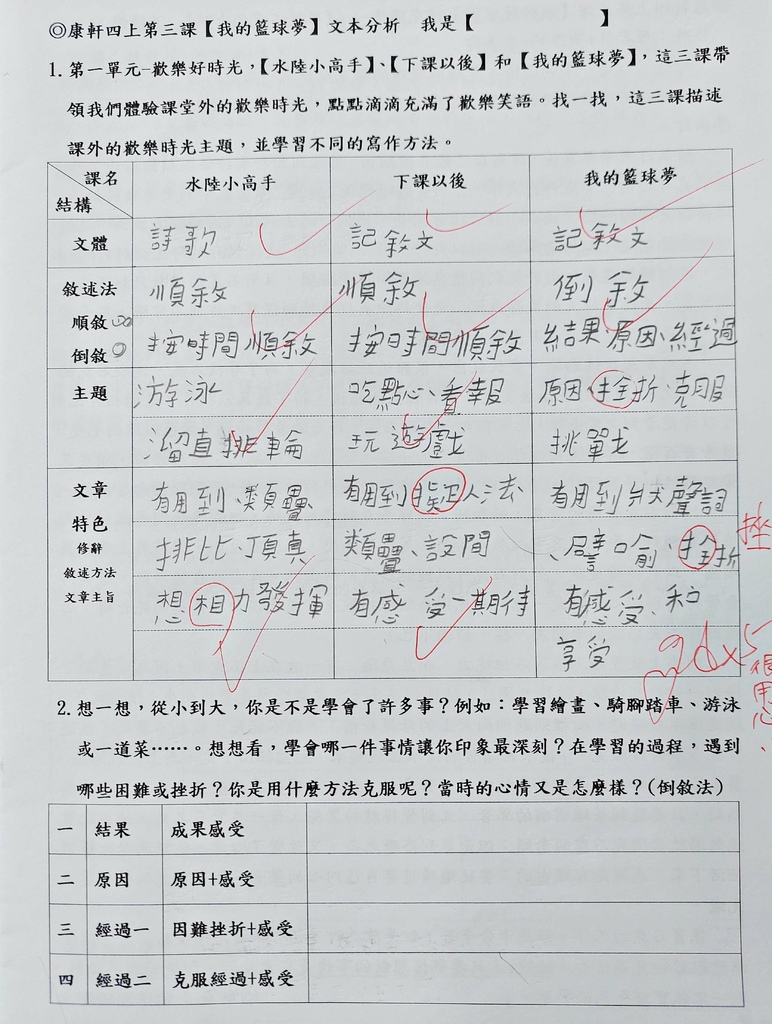 ◎康軒四上第三課【我的籃球夢】文本分析 我是【 】
1. 第一單元-歡樂好時光,【水陸小高手】、【下課以後】和【我的籃球夢】,這三課帶
領我們體驗課堂外的歡樂時光,點點滴滴充滿了歡樂笑語。找一找,這三課描述
課外的歡樂時光主題,並學習不同的寫作方法。
課名 結構 水陸小高手 下課以後 我的籃球夢
文體 詩歌 記敘文 記敘文
敘述法 順敘 順敘 倒敘
順敘 倒敘 按時間順敘 按時間順敘 結果、原因、經過
主題 游泳 吃點心、看報 原因、挫折、克服
溜直排輪 玩遊戲 挑戰
文章 有用到、類疊、 有用到擬人法、 有用到狀聲詞
特色 修辭 排比、頂真 類疊、設問 、譬喻、挫折 挫
敘述方法 文章主旨 想相力發揮 有感受一期待 有感受、和
享受
26x5
很用心、
2. 想一想,從小到大,你是不是學會了許多事?例如:學習繪畫、騎腳踏車、游泳
或一道菜……。想想看,學會哪一件事情讓你印象最深刻?在學習的過程,遇到
哪些困難或挫折?你是用什麼方法克服呢?當時的心情又是怎麼樣?(倒敘法)
一 結果 成果感受
二 原因 原因+感受
三 經過一 困難挫折+感受
四 經過二 克服經過+感受